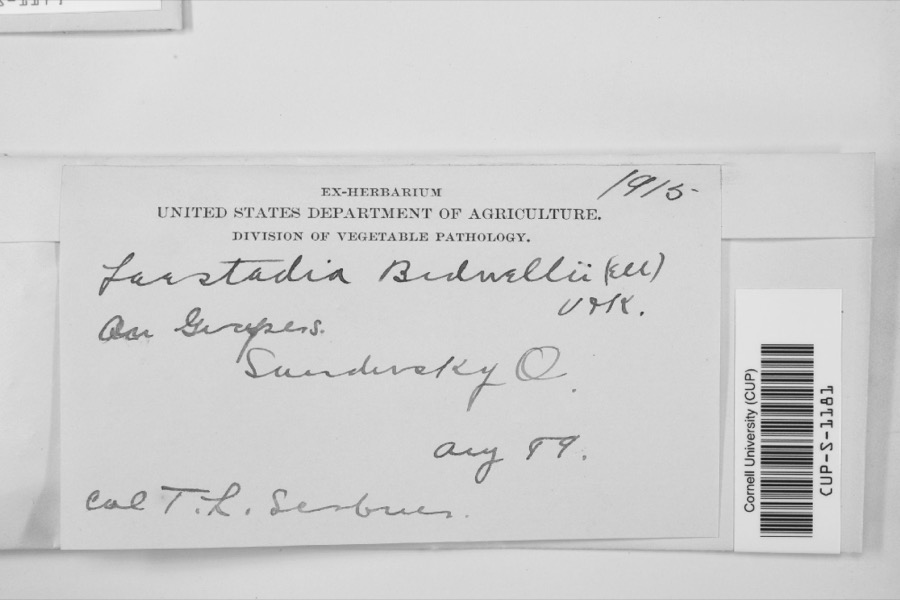 1915
EX-HERBARIUM
UNITED STATES DEPARTMENT OF AGRICULTURE.
DIVISION OF VEGETABLE PATHOLOGY.
Laestadia Bidwellii (Ell)
V & K.
On Grapes.
Sandusky O.
Aug 89.
Col T. L.
Cornell University (CUP)
CUP-S-1181